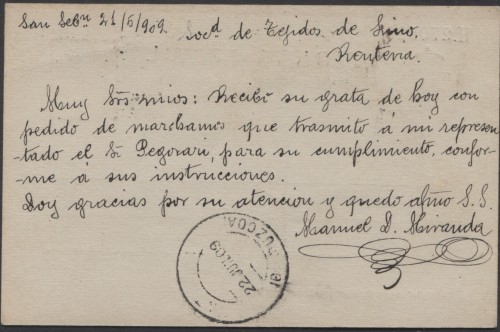 San Sebn 21/6/909.
Socd de Tejidos de Lino.
Rentería.
Muy Srs míos: Recibí su grata de hoy con
pedido de marchamos que trasmito á mi represen-
-tado el Sr Pegorari, para su cumplimiento, confor-
-me á sus instrucciones.
Doy gracias por su atención y quedo afmo S.S.
Manuel D. Miranda
22 JUN 09